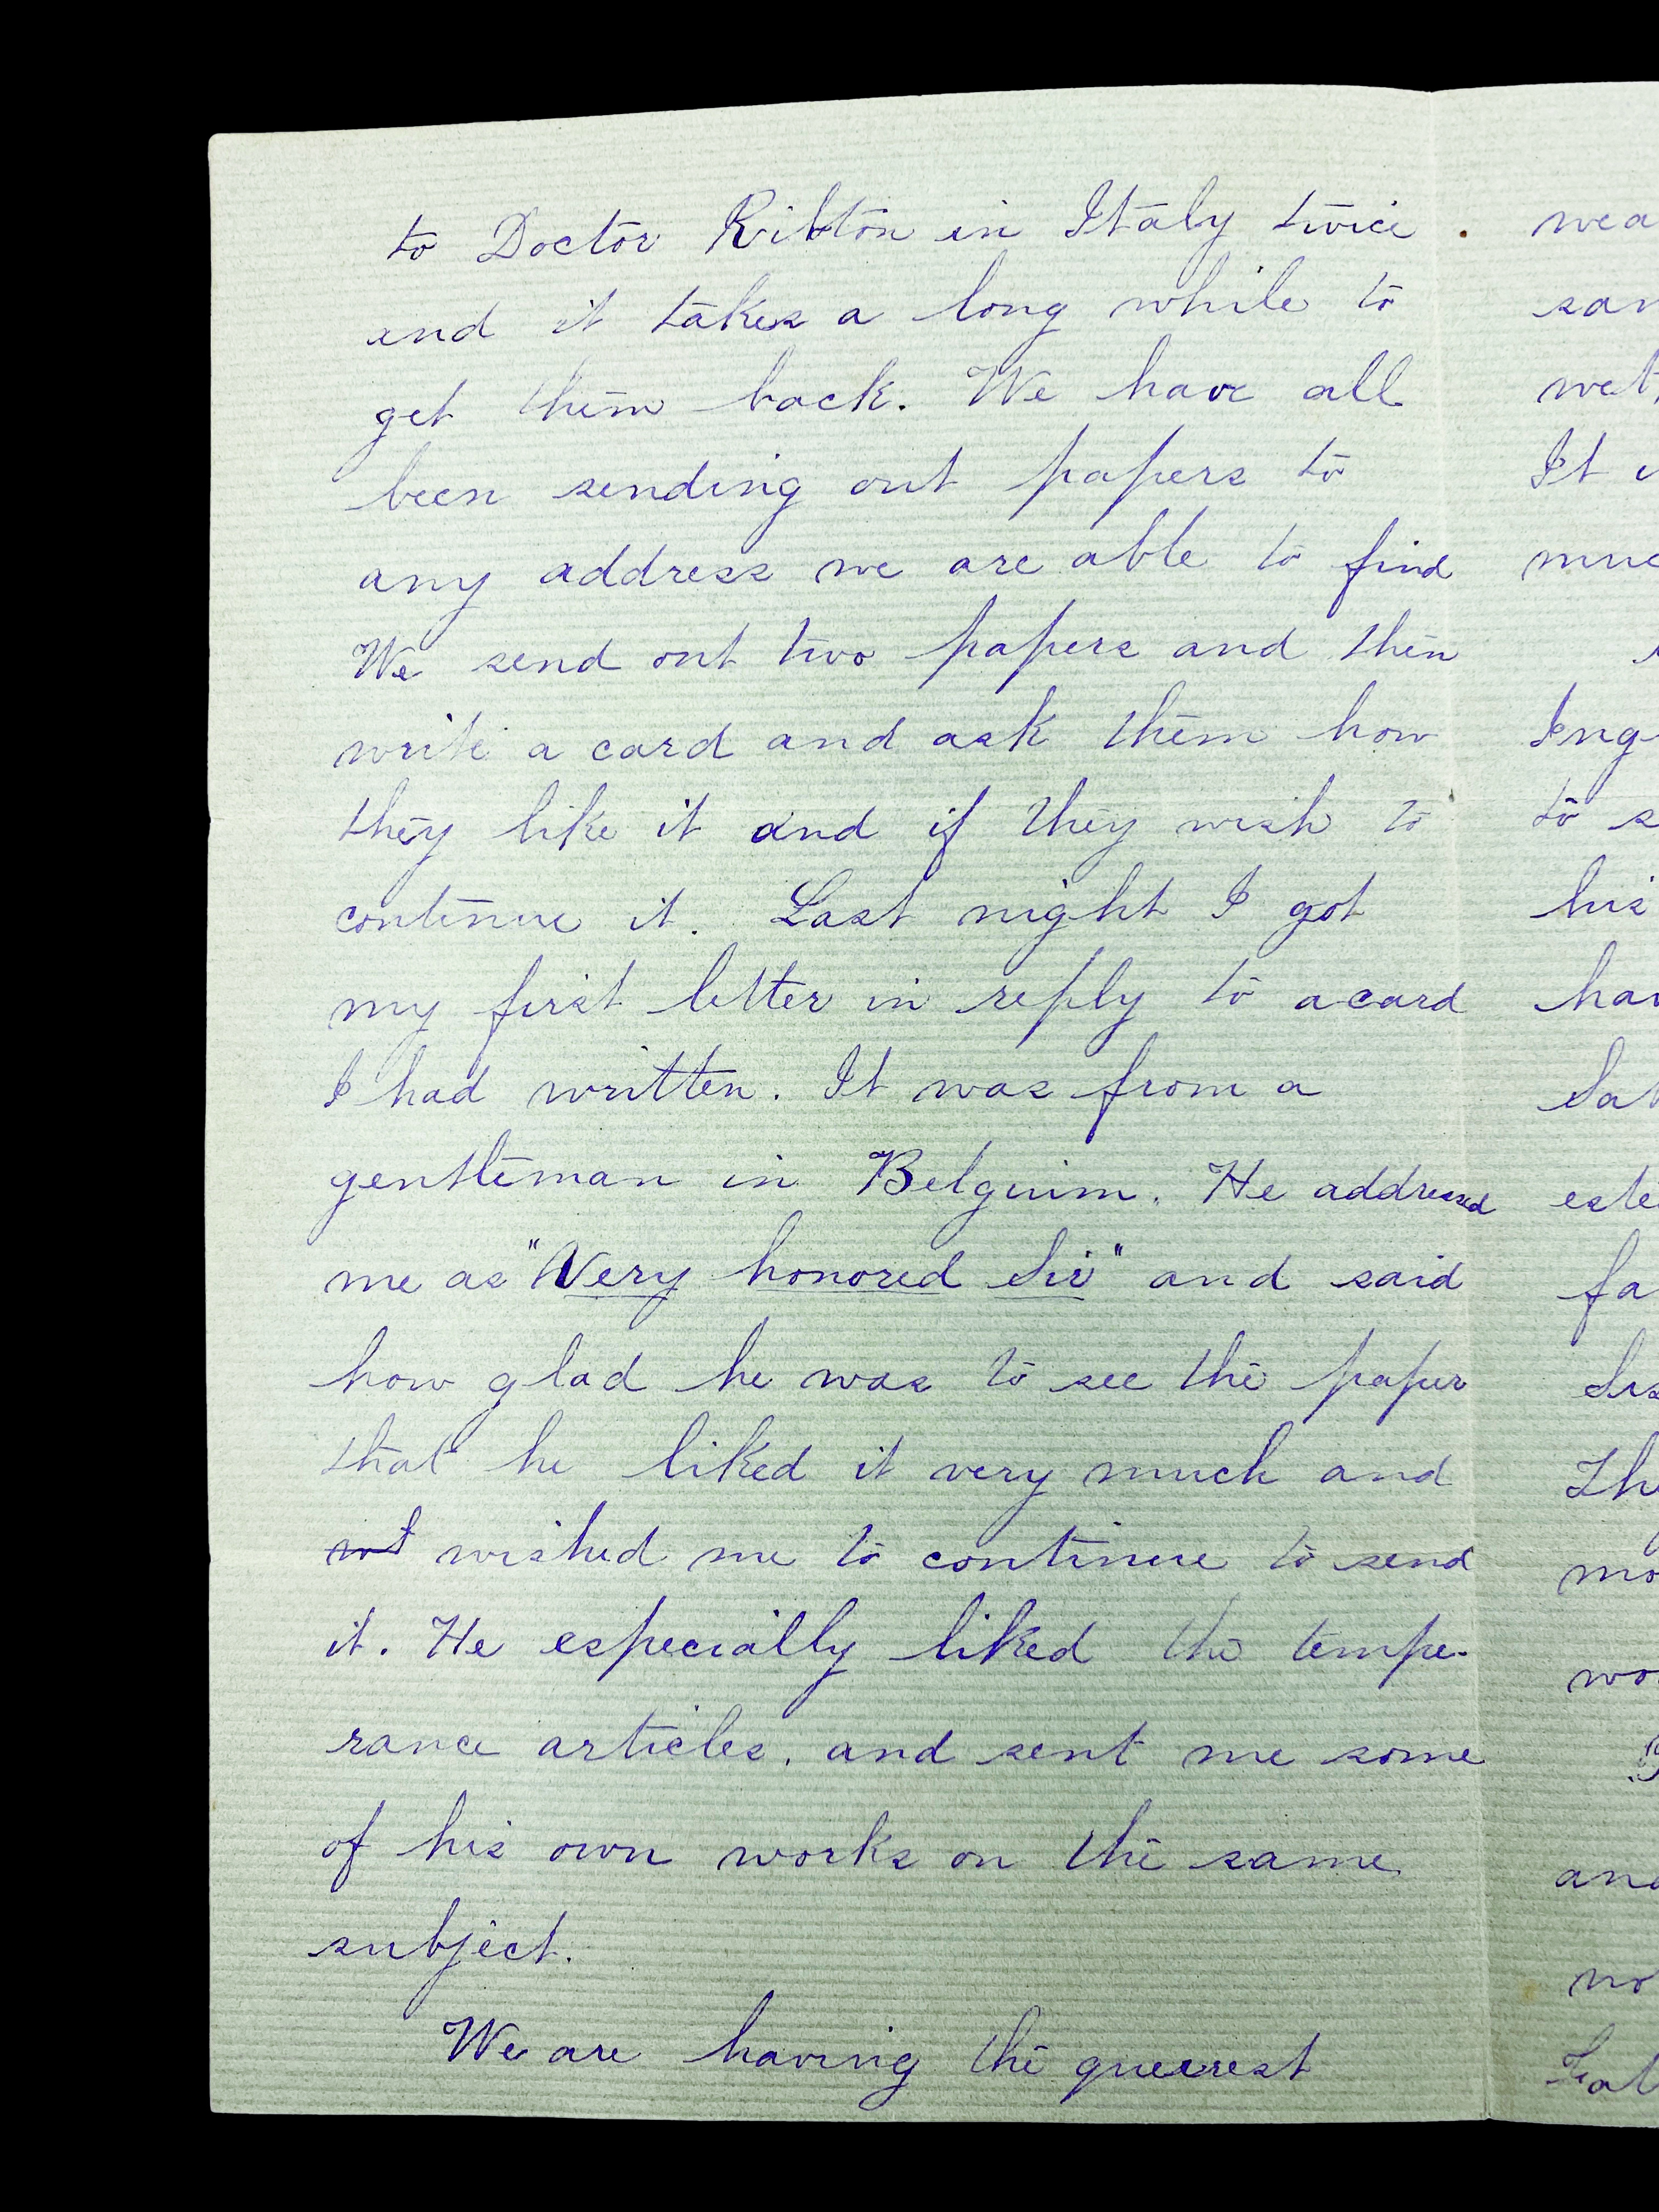 to Doctor Ribton in Italy twice.
and it takes a long while to
get them back. We have all
been sending out papers to
any address we are able to find
We send out two papers and then
write a card and ask them how
they like it and if they wish to
continue it. Last night I got
my first letter in reply to a card
I had written. It was from a
gentleman in Belguim. He addressed
me as "Very honored Sir" and said
how glad he was to see the paper
that he liked it very much and
wishhed me to continue to send
it. He especially liked the tempe-
rance articles. and sent me some
of his own works on the same
subject.
We are having the queerest
wea
sam
wet,
It
muc
Eng
to s
his
hav
Sab
este
fa
Sis
The
mo
wo
and
no